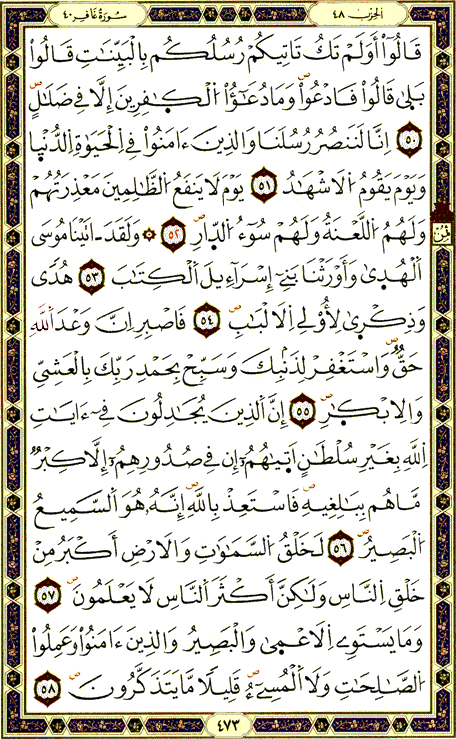 الحزب ٤٨
سُورَةُ غَافِر ٤٠
قَالُوٓاْ أَوَلَمْ تَكُ تَاتِيكُمْ رُسُلُكُم بِالْبَيِّنَٰتِ قَالُواْ
بَلَىٰ قَالُواْ فَادْعُواْ وَمَا دُعَٰٓؤُاْ الْكَٰفِرِينَ إِلَّا فِي ضَلَٰلٍ
٥٠ إِنَّا لَنَنصُرُ رُسُلَنَا وَالذِينَ ءَامَنُواْ فِي الْحَيَوٰةِ الدُّنْيَا
وَيَوْمَ يَقُومُ الَاشْهَٰدُ ٥١ يَوْمَ لَا تَنفَعُ الظَّٰلِمِينَ مَعْذِرَتُهُمْ
وَلَهُمُ اللَّعْنَةُ وَلَهُمْ سُوٓءُ الدّ۪ارِ ٥٢ ۞ وَلَقَدَ اٰتَيْنَا مُوسَى
اَلْهُد۪ىٰ وَأَوْرَثْنَا بَنِےٓ إِسْرَآءِيلَ اَلْكِتَٰبَ ٥٣ هُدىً
وَذِكْر۪ىٰ لِأُوْلِي اِلَالْبَٰبِ ٥٤ فَاصْبِرِ اِنَّ وَعْدَ اَللَّهِ
حَقّٞ وَاسْتَغْفِرْ لِذَنۢبِكَ وَسَبِّحْ بِحَمْدِ رَبِّكَ بِالْعَشِيِّ
وَالِابْكٰ۪رِ ٥٥ إِنَّ اَلذِينَ يُجَٰدِلُونَ فِےٓ ءَايَٰتِ
اِللَّهِ بِغَيْرِ سُلْطَٰنٍ اَت۪يٰهُمُۥٓ إِن فِي صُدُورِهِمُۥٓ إِلَّا كِبْرٞ
مَّا هُم بِبَٰلِغِيهِ فَاسْتَعِذْ بِاللَّهِ إِنَّهُۥ هُوَ اَلسَّمِيعُ
اُلْبَصِيرُ ٥٦ لَخَلْقُ اُلسَّمَٰوَٰتِ وَالَارْضِ أَكْبَرُ مِنْ
خَلْقِ اِلنَّاسِ وَلَٰكِنَّ أَكْثَرَ اَلنَّاسِ لَا يَعْلَمُونَ ٥٧
وَمَا يَسْتَوِي اِلَاعْم۪ىٰ وَالْبَصِيرُ وَالذِينَ ءَامَنُواْ وَعَمِلُواْ
اُلصَّٰلِحَٰتِ وَلَا اَلْمُسِےٓءُ قَلِيلًا مَّا يَتَذَكَّرُونَ ٥٨
ثمن
٤٧٣